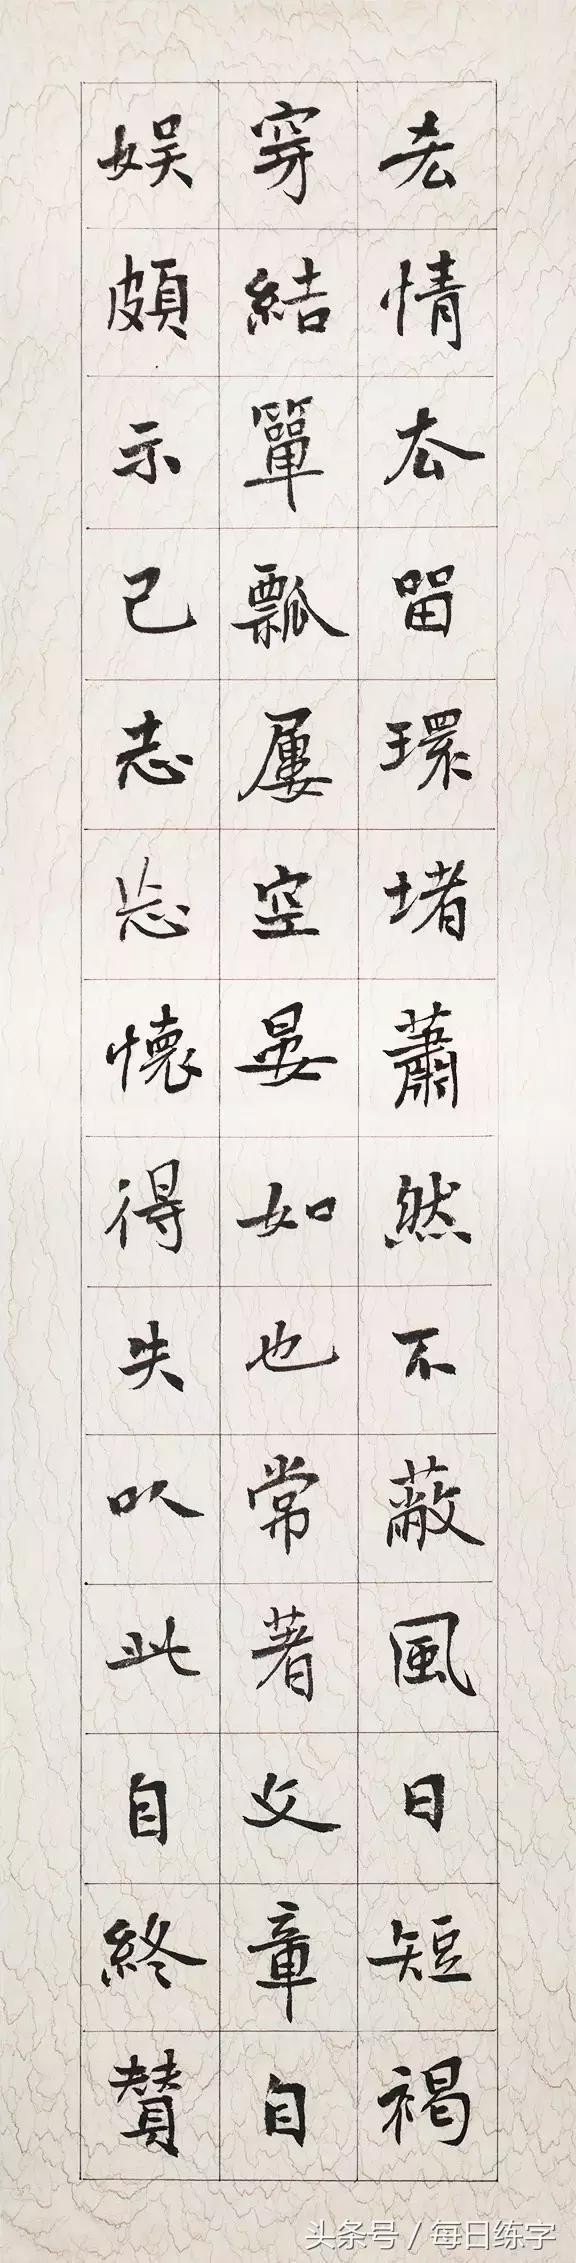 吝情去留環堵蕭然不蔽風日短褐
穿結簞瓢屢空晏如也常著文章自
娛頗示己志忘懷得失以此自終贊
头条号 / 每日练字